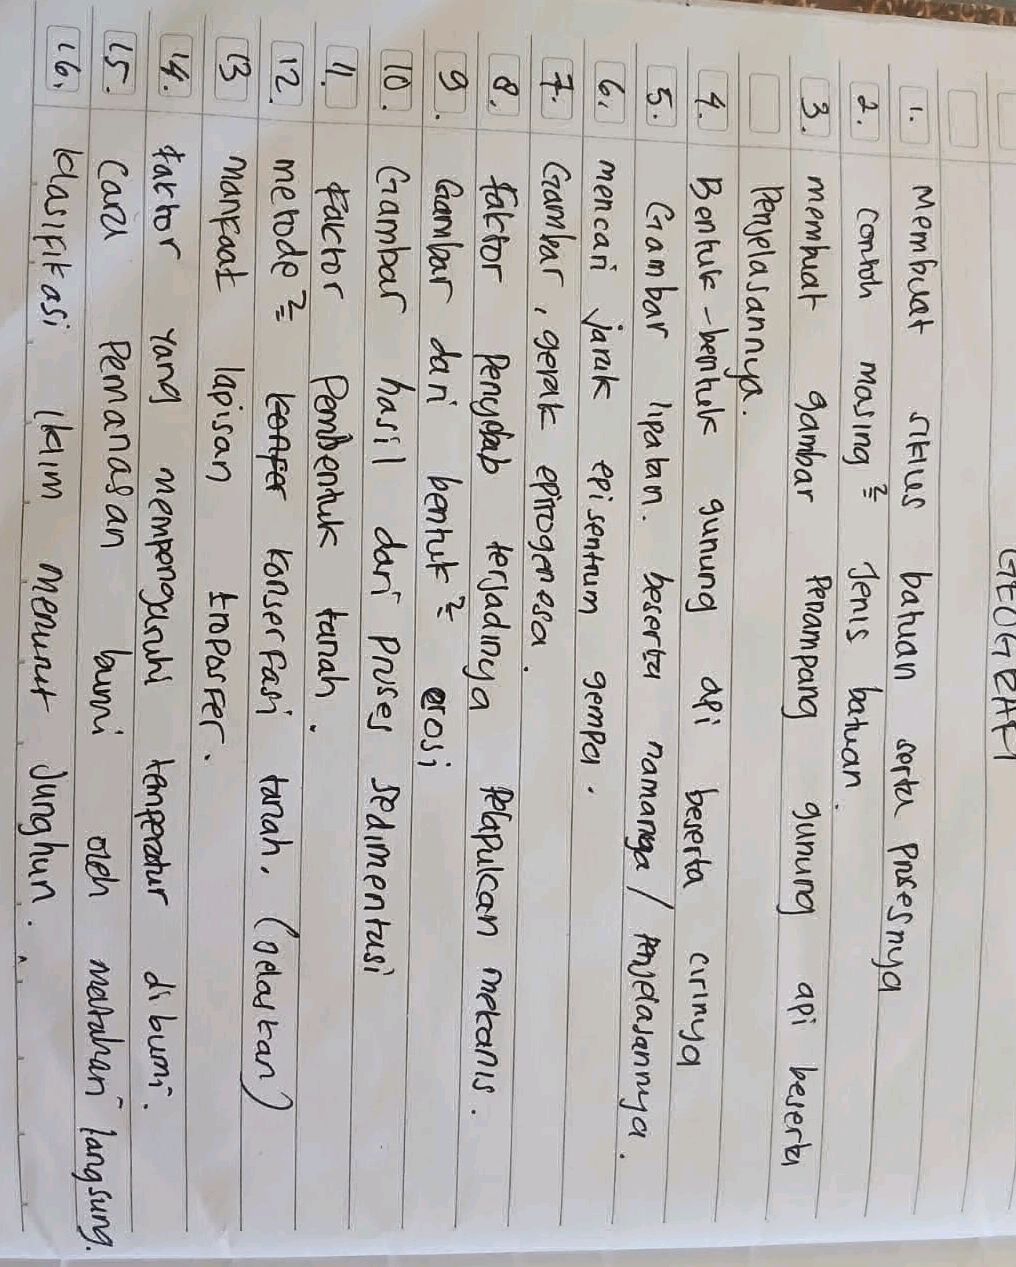 GEOGRAFI
1. Membuat siklus batuan serta prosesnya
2. contoh masing² Jenis batuan.
3. membuat gambar Penampang gunung api beserta
Penjelasannya.
4. Bentuk-bentuk gunung api beserta cirinya
5. Gambar lipatan. beserta namanya / penjelasannya.
6. mencari jarak episentrum gempa.
7. Gambar, gerak epirogenesa.
8. faktor Penyebab terjadinya Pelapukan mekanis.
9. Gambar dari bentuk² erosi
10. Gambar hasil dari Proses sedimentasi
11. Faktor Pembentuk tanah.
12. metode² konserfasi tanah. (jelaskan)
13 manfaat lapisan troposfer.
14. faktor yang mempengaruhi temperatur di bumi.
15. Cara Pemanasan bumi oleh matahari langsung.
16. klasifikasi iklim menurut Junghun.